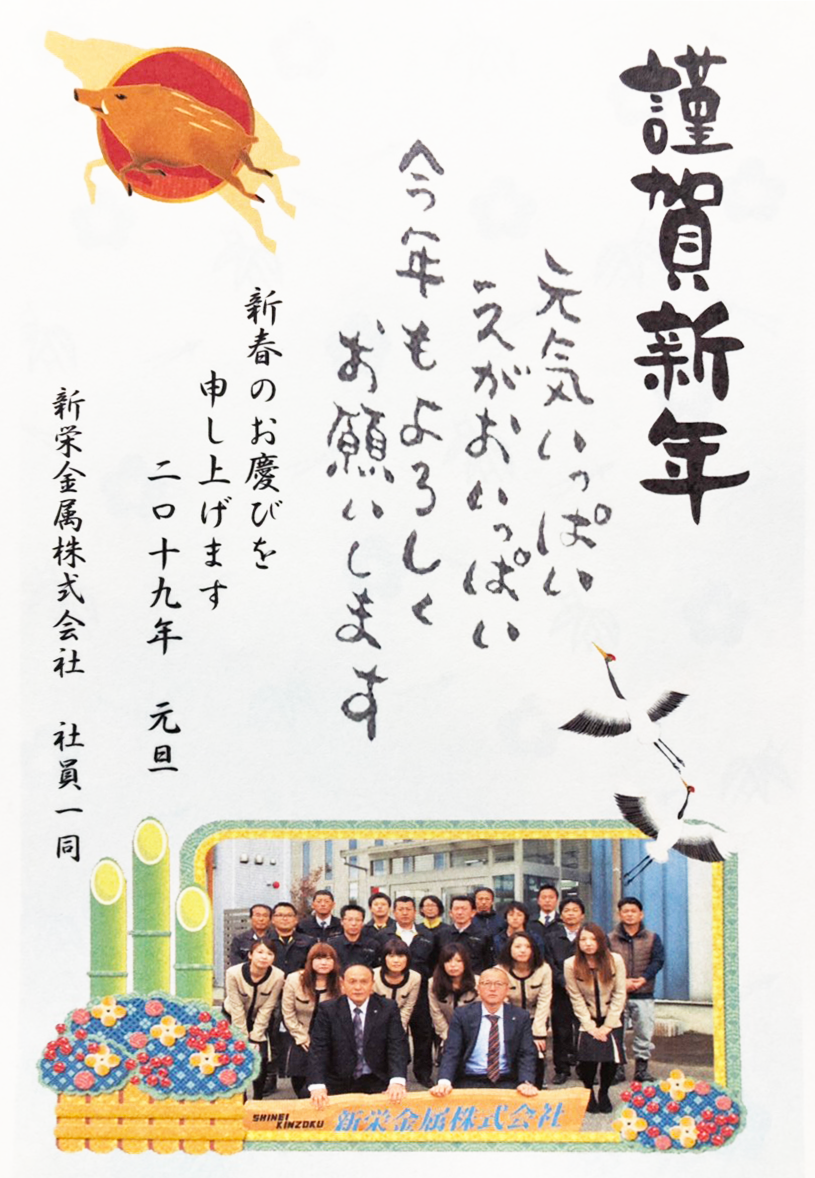 謹賀新年
元気いっぱい
えがおいっぱい
今年もよろしく
お願いします
新春のお慶びを
申し上げます
二〇十九年 元旦
新栄金属株式会社 社員一同
SHINEI
KINZOKU
新栄金属株式会社